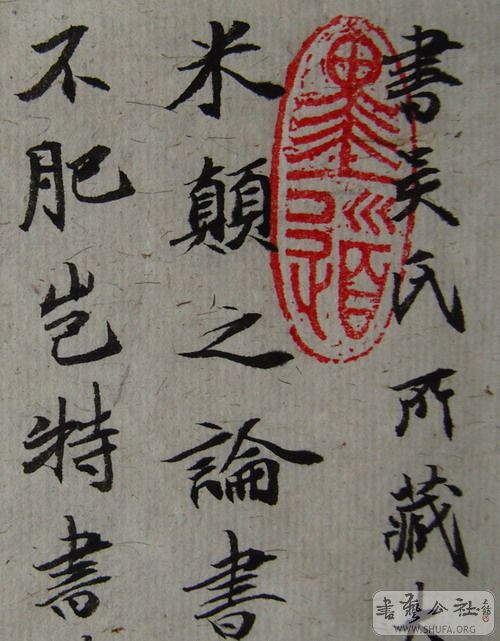 書吴氏所藏
米顛之論書
不肥豈特書
書藝公社
WWW.SHUFA.ORG